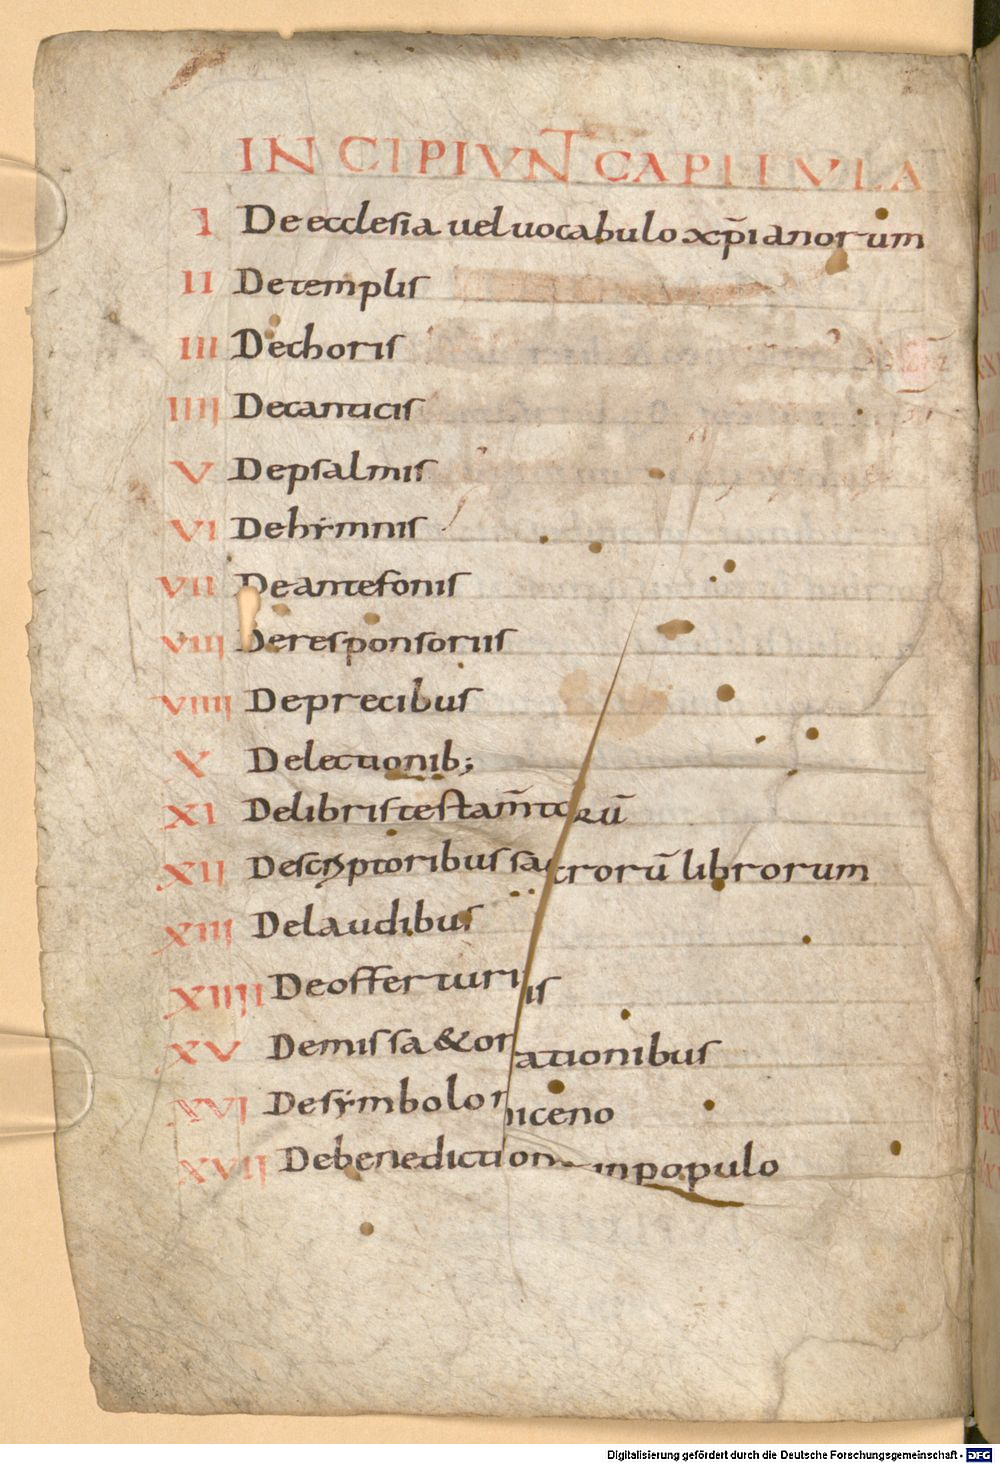 INCIPIUNT CAPITULA
I De ecclesia uel uocabulo xp̄ianorum
II De templis
III De choris
IIII De canticis
V De psalmis
VI De hẏmnis
VII De antefonis
VIII De responsoriis
VIIII De precibus
X De lectionib;
XI De libris testam̄torū
XII De scrẏptoribus sacrorū librorum
XIII De laudibus
XIIII De offerturiis
XV De missa & orationibus
XVI De sẏmbolo niceno
XVII De benediction in populo
Digitalisierung gefördert durch die Deutsche Forschungsgemeinschaft - DFG